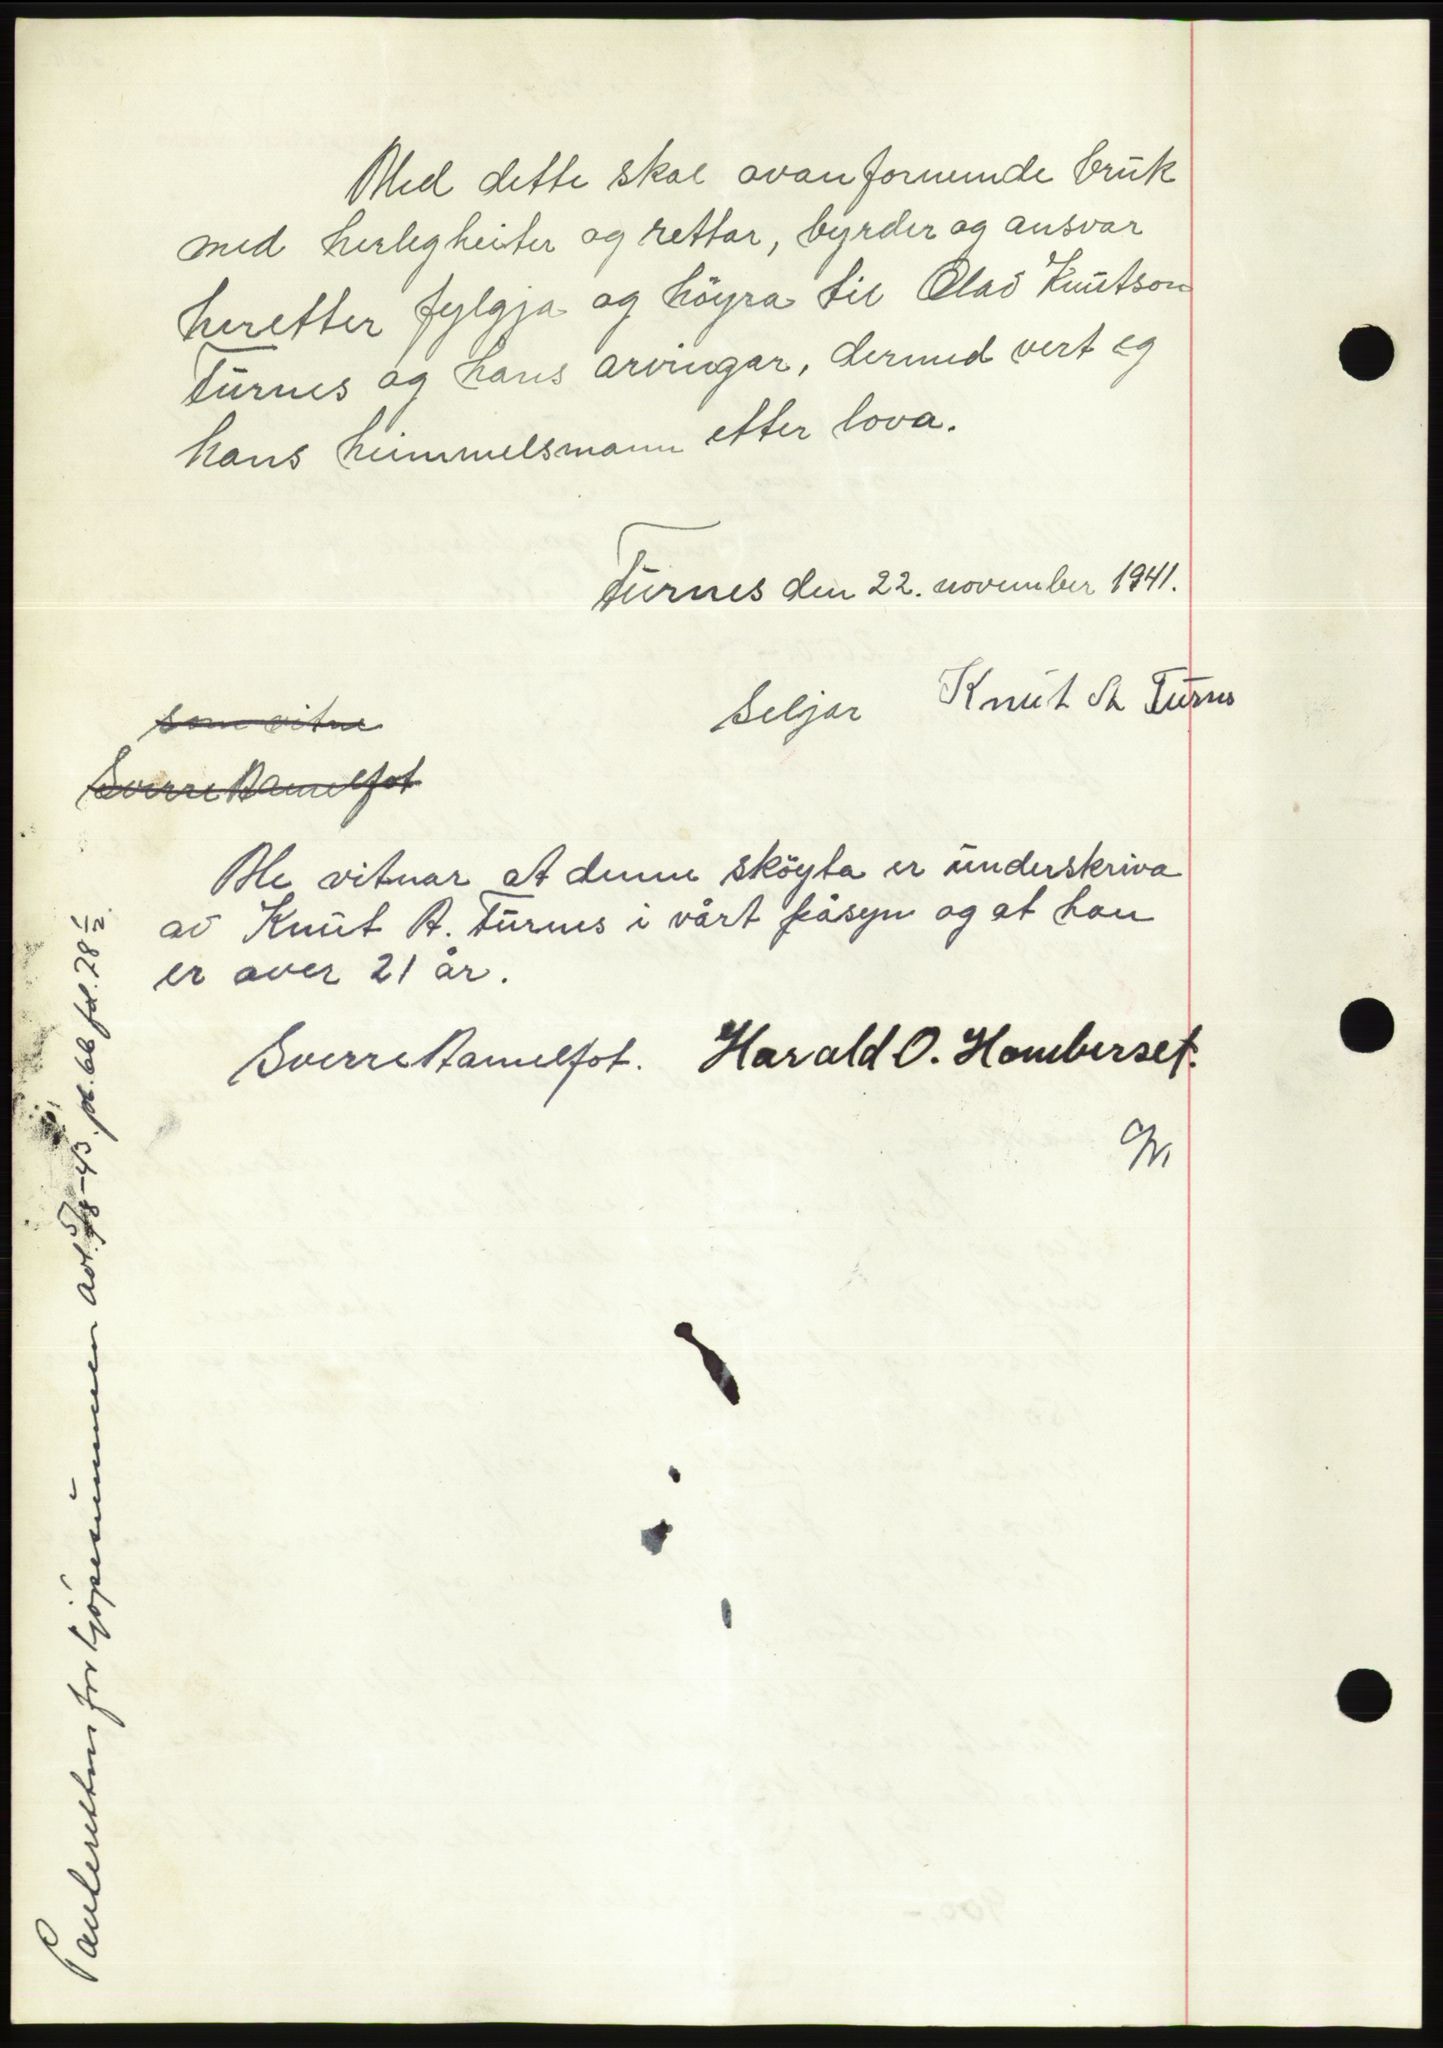 Med dette skal ovanfornemnde bruk
med herlegheiter og rettar, byrder og ansvar
heretter fylgja og höyra til Olav Knutson
Turnes og hans arvingar, dermed vert eg
hans heimmelsmann etter lova.
Turnes den 22. november 1941.
Seljar Knut A Turnes
som vitne
Sverre Ramelfot
Me vitnar at denne sköyta er underskriva
av Knut A. Turnes i vårt påsyn og at han
er over 21 år.
Sverre Ramelfot. Harald O. Homberset.
Panteretten for kjöpesummen avl. 5/8-43. pb. 66 fol. 28 1/2.